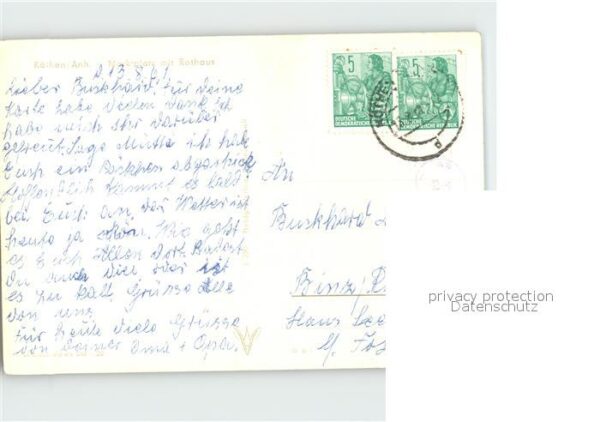 Köthen Anh. Marktplatz mit Rathaus
13.8.61
Lieber Burkhard. Für deine
Karte habe vielen Dank ich
habe mich sehr darüber
gefreut. Sage Mutti ich habe
Euch ein abgeschickt
Hoffentlich kommt es bald
bei Euch an. Das Wetter ist
heute ja schön. Wie geht
es Euch allen dort. Badest
Du auch viel oder ist
es zu kalt. Grüsse alle
von uns
Für heute viele Grüsse
von Deiner Oma + Opa.
5
DEUTSCHE
DEMOKRATISCHE REPUBLIK
5
DEUTSCHE
DEMOKRATISCHE REPUBLIK
An
Burkhard
Binz/R
Haus See
privacy protection
Datenschutz